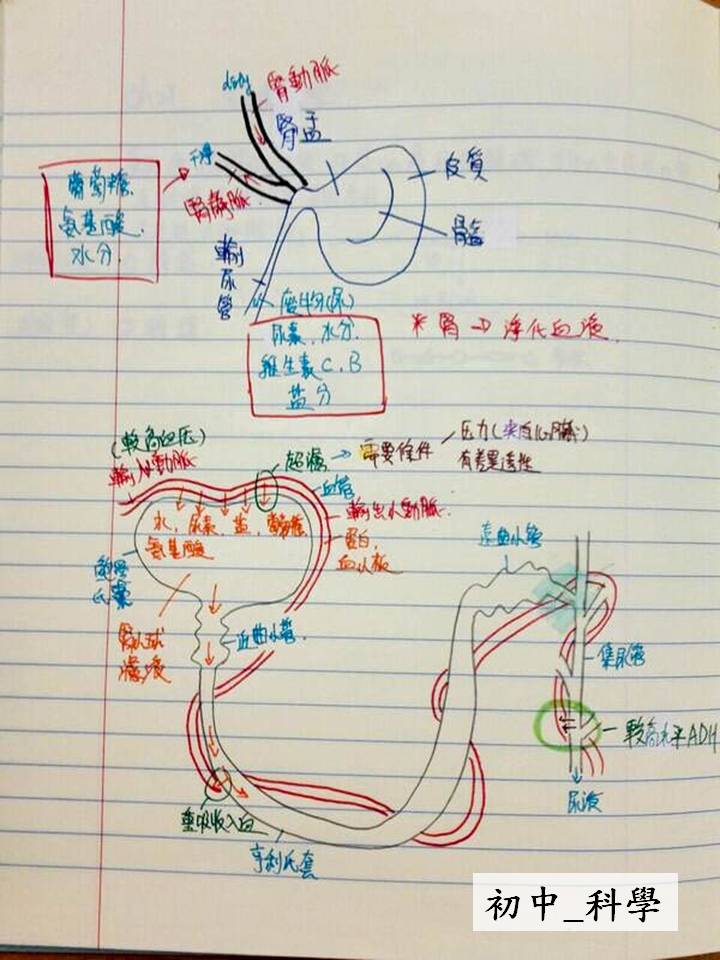 dirty
腎動脈
腎盂
干淨
腎靜脈
葡萄糖.
氨基酸.
水分.
皮質
髓
輸尿管
廢物(尿)
尿素、水分.
維生素C、B
盐分
*腎→淨化血液.
(較高血压)
輸入小動脈
超濾→需要條件
压力(來自心臟)
有差異透性
血管
輸出小動脈.
蛋白,
血小板
水、尿素、盐、葡萄糖
氨基酸
鮑氏囊
腎小球
濾液
近曲小管.
遠曲小管
集尿管
較高水平ADH
尿液
重吸收入血
亨利氏套
初中_科學